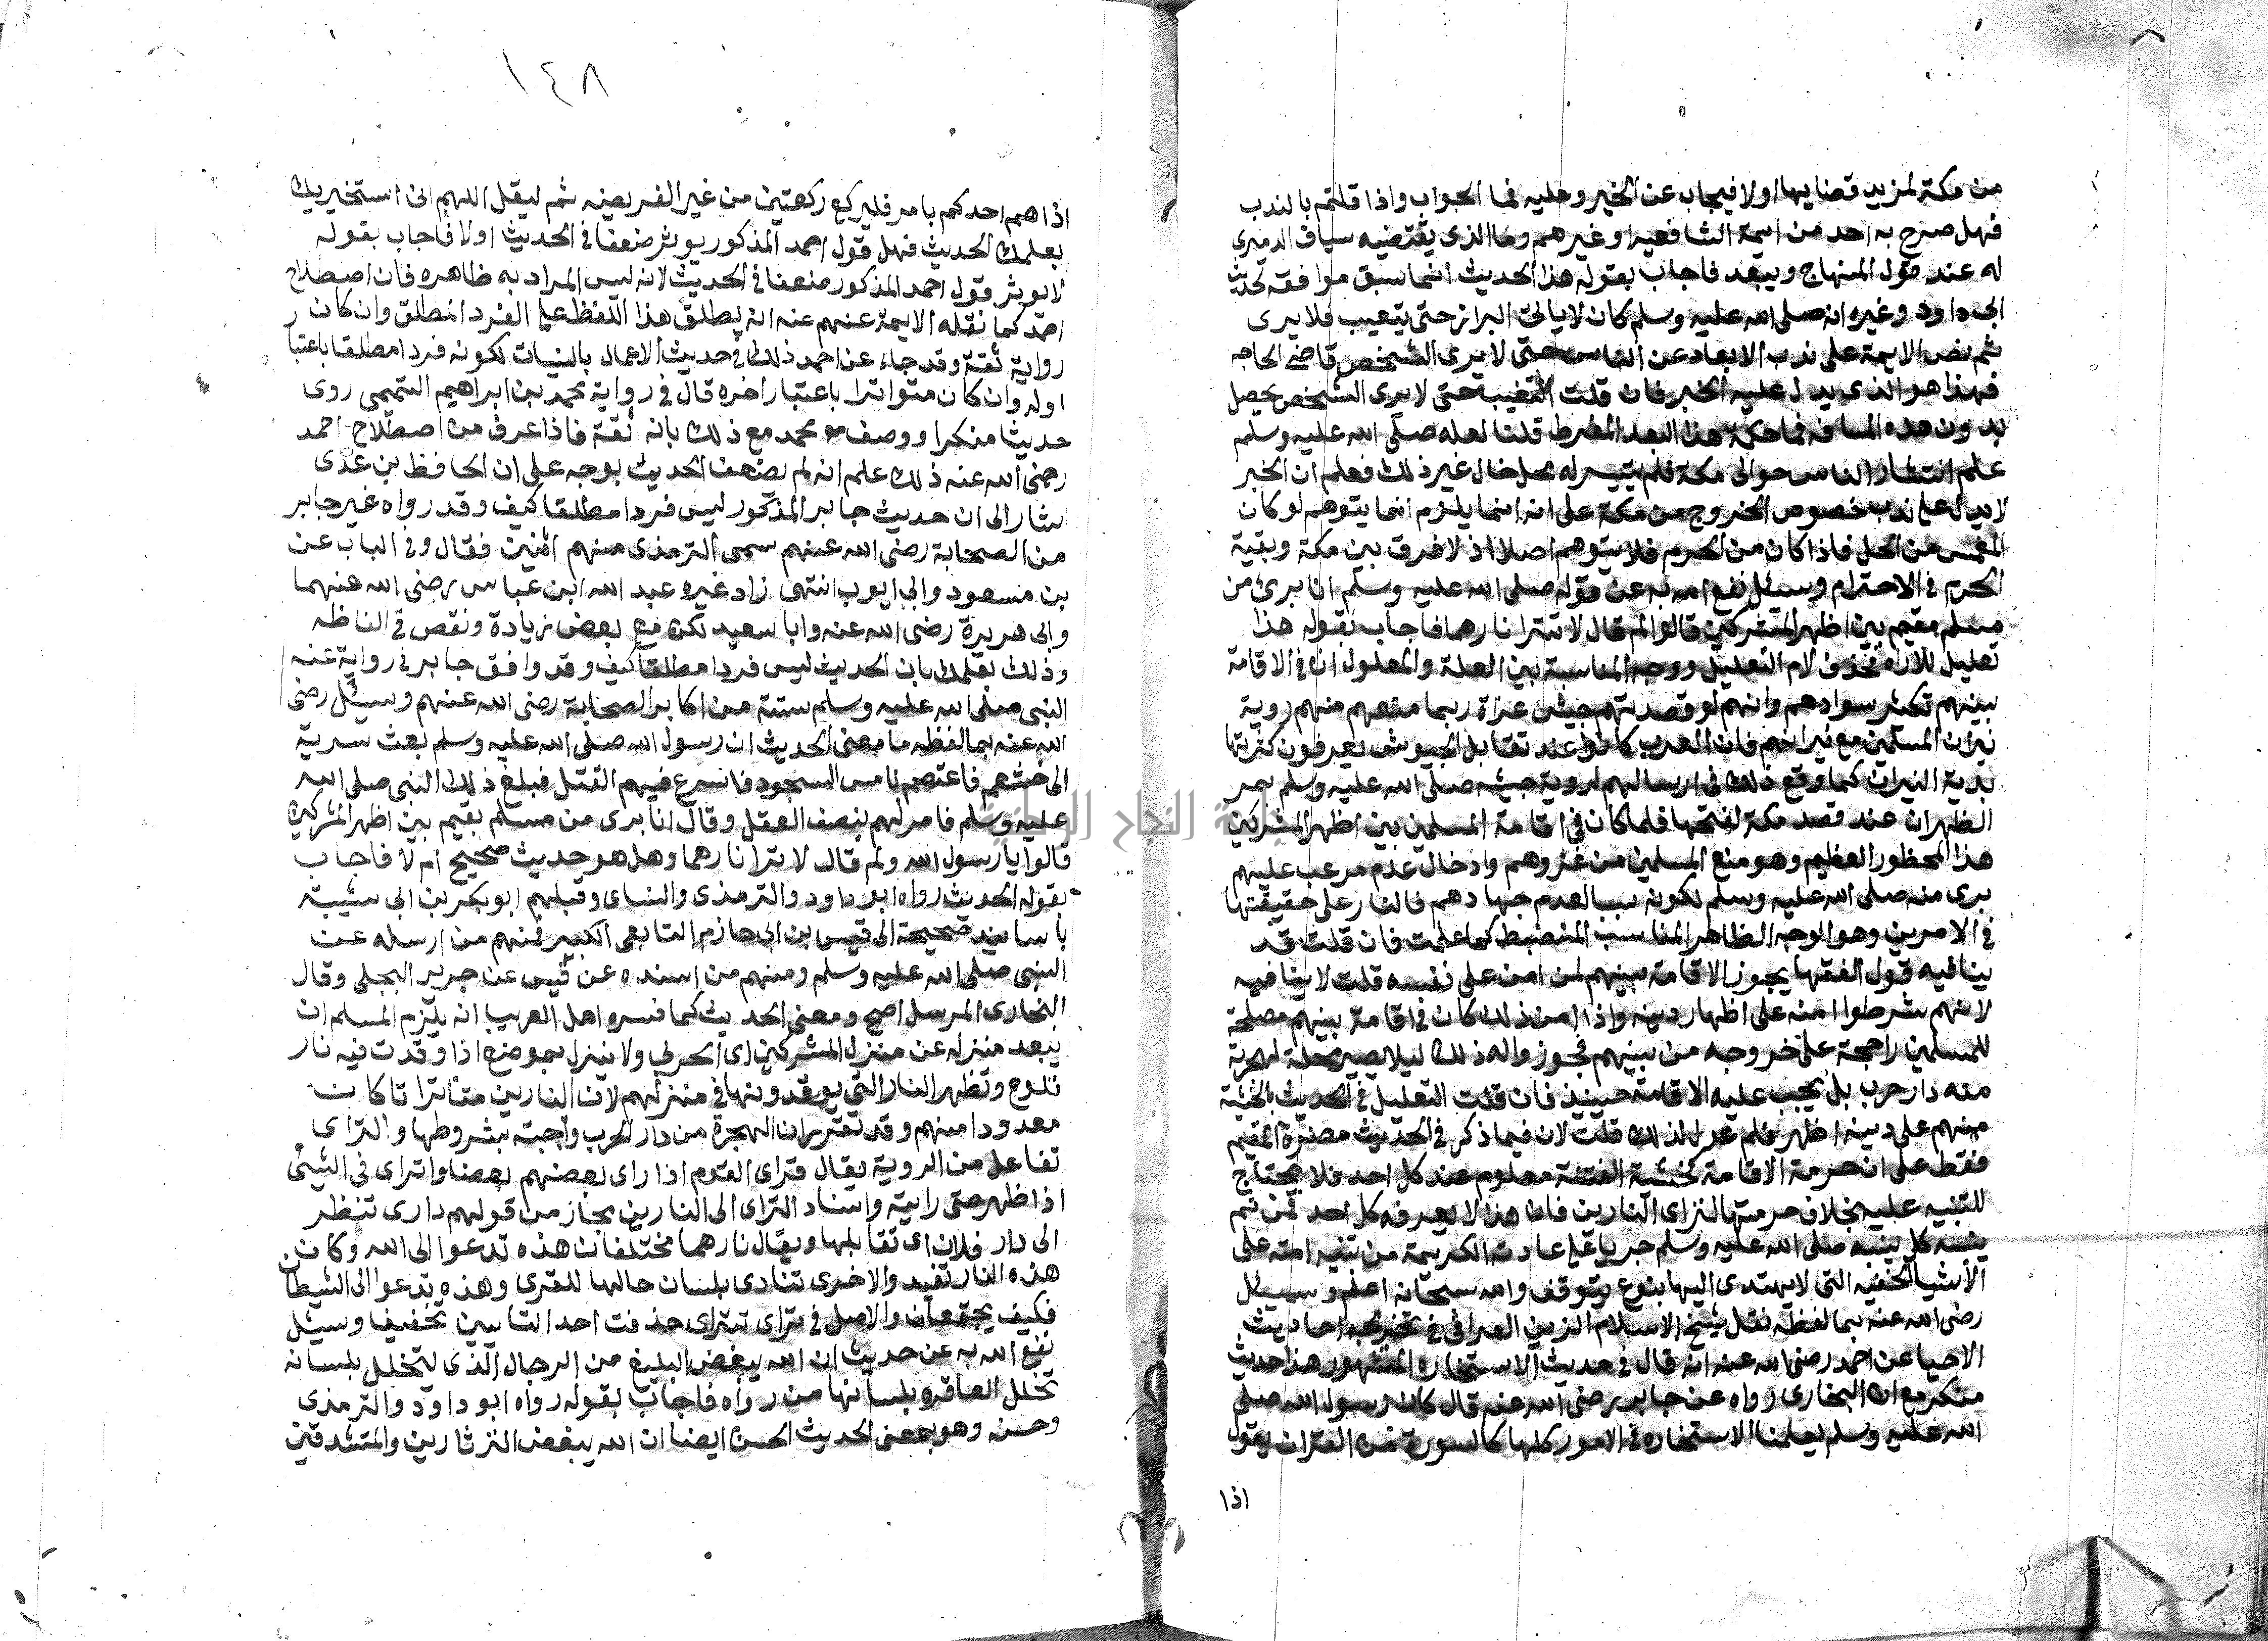 من مكة لمزيد قضايها اولا فيجاب عن الخبر وعليه فما الجواب واذا قلتم بالندب
فهل صرح به احد من ايمة الشافعيه او غيرهم وما الذى يقتضيه سياق الدميرى
له عند قول المنهاج ويبعد فاجاب بقوله هذا الحديث انما سبق موافقه لحديث
ابى داود وغيره انه صلى الله عليه وسلم كان لا ياتى البراز حتى يتغيب فلا يرى
ثم نص الايمة على ندب الابعاد عن الناس حتى لا يرى الشخص قاضى الحاجه
فهذا هو الذى يدل عليه الخبر فان قلت التغيب حتى لا يرى الشخص يحصل
بدون هذه المسافه فما حكمة هذا البعد المفرط قلنا لعله صلى الله عليه وسلم
علم انتشار الناس حوالى مكة فلم يتيسر له محل خال غير ذلك فعلم ان الخبر
لا يدل على ندب خصوص الخروج من مكة على انه انما يلزم انما يتوهم لو كان
المغمس من الحل فاذا كان من الحرم فلا يتوهم اصلا اذ لا فرق بين مكة وبقية
الحرم فى الاحترام وسيئل نفع الله به عن قوله صلى الله عليه وسلم انا برئ من
مسلم مقيم بين اظهر المشركين قالوا لم قال لا تترا نارهما فاجاب بقوله هذا
تعليل للاراه بحذف لام التعليل ووجه المناسبة بين العلة والمعلول ان فى الاقامة
بينهم تكثير سوادهم وانهم لو قصدتهم جيش غزاة ربما منعهم منهم روية
نيران المسلمين مع نيرانهم فان العرب كانوا عند تقابل الجيوش يعرفون كثرتها
بروية النيران كما وقع ذلك فى ارسالهم لروية جيشه صلى الله عليه وسلم بمر
الظهران عند قصد مكة لفتحها فلما كان فى اقامة المسلمين بين اظهر المشركين
هذا المحظور العظيم وهو منع المسلمين من غزوهم وادخال عدم مرعب عليهم
برى منه صلى الله عليه وسلم لكونه سببا لعدم جهادهم فالنار على حقيقتها
فى الامرين وهو الوجه الظاهر المناسب المنضبط كما علمت فان قلت قد
ينافيه قول الفقها يجوز الاقامة بينهم لمن امن على نفسه قلت لا ينافيه
لانهم شرطوا امنه على اظهار دينه واذا امن ذلك كان فى اقامة بينهم مصلحة
للمسلمين راجحة على خروجه من بينهم فجوزوا له ذلك ليلا يصير محلة لهجرية
منه دار حرب بل يجب عليه الاقامة حينيذ فان قلت التعليل فى الحديث بالخشية
منهم على دينه اظهر فلم عدل لذلك قلت لان فيما ذكر فى الحديث مضرة المقيم
فقط على ان حرمة الاقامة لخشية الفتنة معلوم عند كل احد فلا يحتاج
للتنبيه عليه بخلاف حرمتها لتراى النارين فان هذا لا يعرفه كل احد فمن ثم
ينبه كل ينبه صلى الله عليه وسلم جريا على عادته الكريمة من تنبيه امته على
الاشيا الخفيه التى لا يهتدى اليها بنوع توقف والله سبحانه اعلم وسيئل
رضى الله عنه بما لفظه نقل شيخ الاسلام الزين العراقى فى تخريجه احاديث
الاحيا عن احمد رضى الله عنه انه قال فى حديث الاستخاره المشهور هذا حديث
منكر مع ان البخارى رواه عن جابر رضى الله عنه قال كان رسول الله صلى
الله عليه وسلم يعلمنا الاستخاره فى الامور كلها كالسورة من القران يقول
اذا
١٤٨
اذا هم احدكم بامر فليركع ركعتين من غير الفريضه ثم ليقل اللهم انى استخيريك
بعلمك الحديث فهل قول احمد المذكور يوثر ضعفا فى الحديث اولا فاجاب بقوله
لا يوثر قول احمد المذكور ضعفا فى الحديث لانه ليس المراد به ظاهره فان اصطلاح
احمد كما نقله الايمة عنهم عنه انه يطلق هذا اللفظ على الفرد المطلق وان كان ر
رواية ثقة وقد جاء عن احمد ذلك فى حديث الاعمال بالنيات لكونه فردا مطلقا باعتبا
اوله وان كان متواترا باعتبار اخره قال فى رواية محمد بن ابراهيم التميمى روى
حديثا منكرا ووصف محمد مع ذلك بانه ثقة فاذا عرف من اصطلاح احمد
رضى الله عنه ذلك علم انه لم يضعف الحديث بوجه على ان الحافظ بن عدى
شار الى ان حديث جابر المذكور ليس فردا مطلقا كيف وقد رواه غير جابر
من الصحابة رضى الله عنهم سمى الترمذى منهم اثنين فقال وفى الباب عن
بن مسعود وابى ايوب انتهى زاد غيره عبد الله ابن عباس رضى الله عنهما
وابى هريرة رضى الله عنه وابا سعيد لكن مع بعض زيادة ونقص فى الفاظه
وذلك يعلمك بان الحديث ليس فردا مطلقا كيف وقد وافق جابر فى رواية عنه
النبى صلى الله عليه وسلم ستة من اكابر الصحابة رضى الله عنهم وسيئل رضى
الله عنه بما لفظه ما معنى الحديث ان رسول الله صلى الله عليه وسلم بعث سرية
الى خثعم فاعتصم ناس السجود فاسرع فيهم القتل فبلغ ذلك النبى صلى الله
عليه وسلم فامر لهم بنصف العقل وقال انا برى من مسلم يقيم بين اظهر المشركين
قالوا يا رسول الله ولم قال لا ترا نارهما وهل هو حديث صحيح ام لا فاجاب
بقوله الحديث رواه ابو داود والترمذى والنساى وقبلهم ابو بكر بن ابى شيبة
باسانيد صحيحة الى قيس بن ابى حازم التابعى الكبير فمنهم من ارسله عن
النبى صلى الله عليه وسلم ومنهم من اسنده عن قيس عن جرير البجلى وقال
البخارى المرسل اصح ومعنى الحديث كما فسره اهل الغريب انه يلزم المسلم ان
يبعد منزله عن منزل المشركين اى الحربى ولا ينزل بموضع اذا وقدت فيه نار
تلوح وتظهر النار التى يوقدونها فى منزلهم لان النارين متى تراتا كان
معدودا منهم وقد تقرر ان الهجرة من دار الحرب واجبة بشروطها والتراى
تفاعل من الروية يقال تراى القوم اذا راى بعضهم بعضا واتراى فى الشئ
اذا ظهر حتى رايته واسناد التراى الى النارين مجاز من قولهم دارى تنظر
الى دار فلان اى تقابلها ويقال نارهما مختلفان هذه تدعوا الى الله وكان
هذه النار تفيد والاخرى تنادى بلسان حالها للقرى وهذه تدعوا الى الشيطان
فكيف يجتمعان والاصل فى تراى تتراى حذفت احد التايين تخفيفا وسيئل
نفع الله به عن حديث ان الله يبغض البليغ من الرجال الذى يتخلل بلسانه
تخلل الباقره بلسانها من رواه فاجاب بقوله رواه ابو داود والترمذى
وحسنه وهو بمعنى الحديث الحسن ايضا ان الله يبغض الثرثارين والمتشدقين